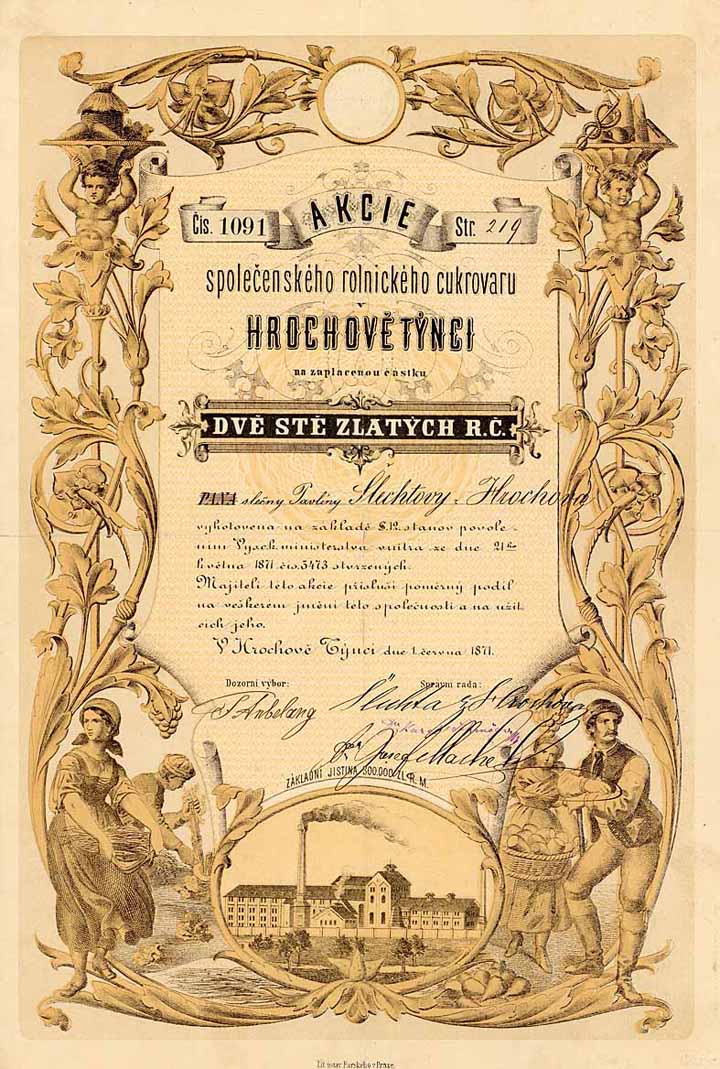 Čís. 1091 AKCIE Str. 219
společenského rolnického cukrovaru
v
HROCHOVĚTÝNCI
na zaplacenou částku
DVĚ STĚ ZLATÝCH R.Č.
PANA slečny Pavlíny Šlechtovy z Hrochova
vyhotovena na základě §. 12. stanov povole-
ním Vysok. ministerstva vnitra ze dne 21ho
května 1871. čís. 5473 stvrzených.
Majiteli této akcie přísluší poměrný podíl
na veškerém jmění této společnosti a na užit-
cích jeho.
V Hrochově Týnci dne 1. června 1871.
Dozorní výbor: Správní rada:
Šlechta z Hrochova
Josef
ZÁKLADNÍ JISTINA 300.000 ZL. R. M.
Lit. ústav Farského v Praze.